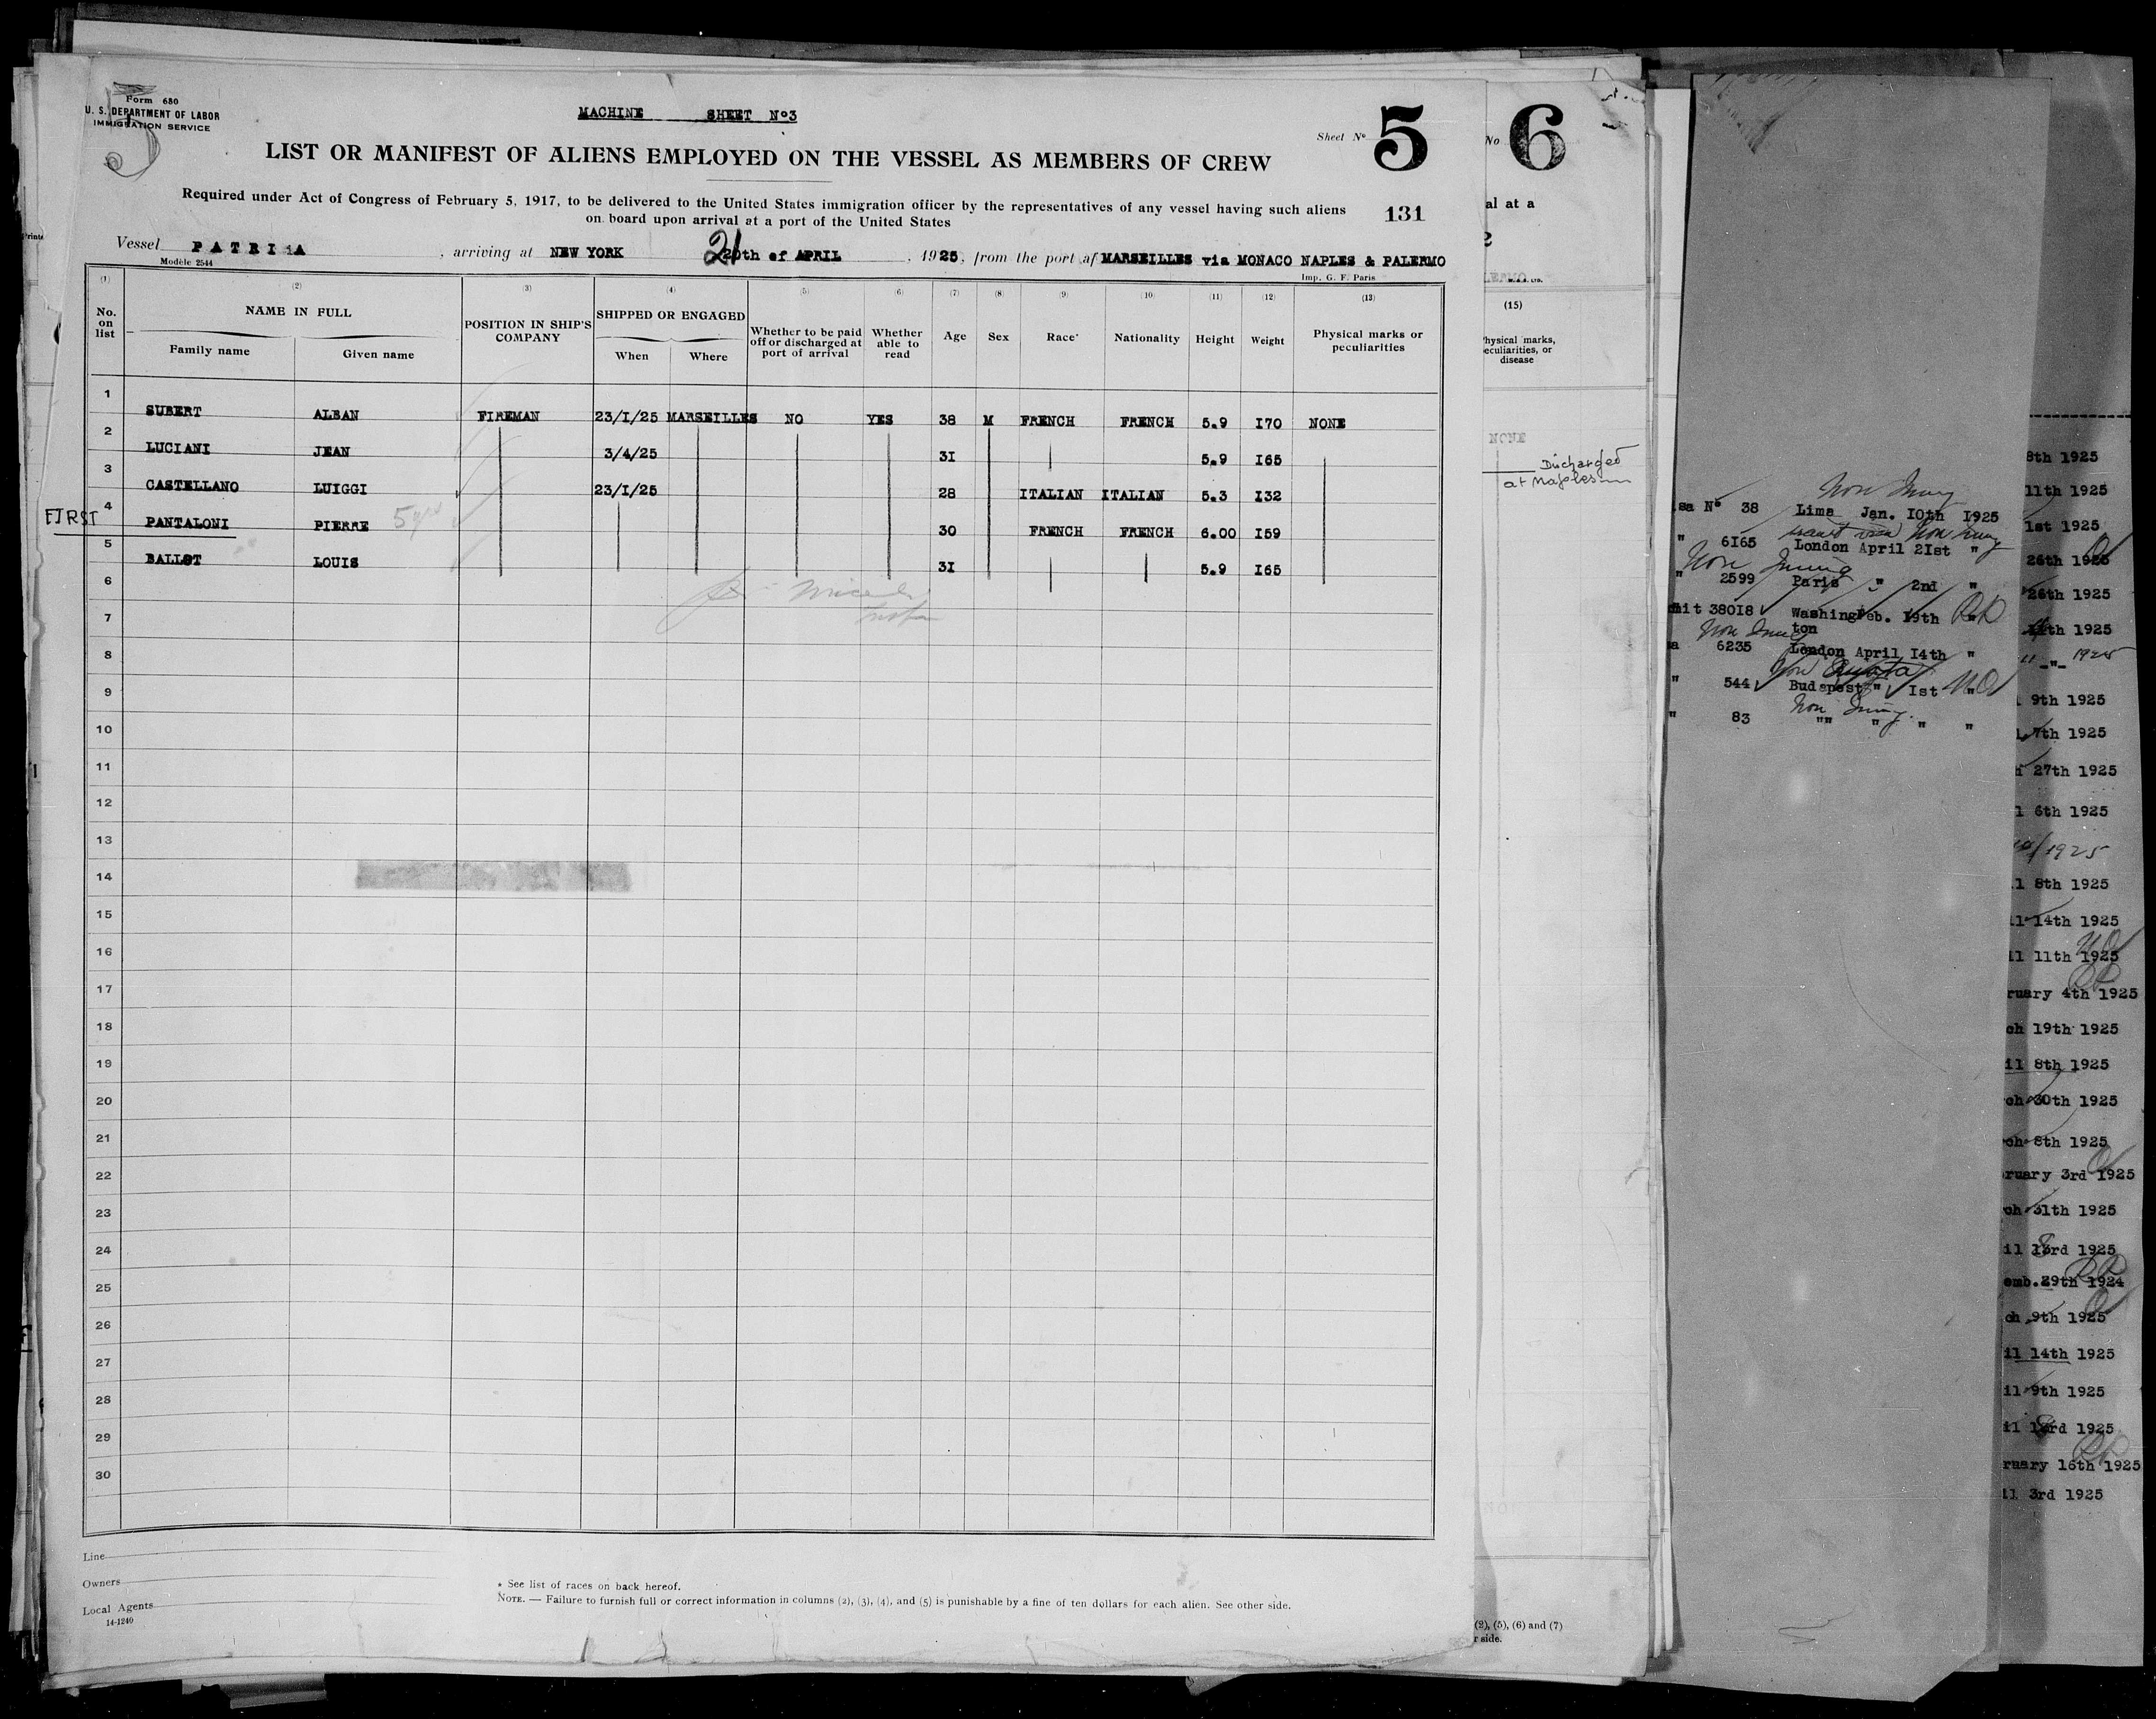 Form 680
U. S. DEPARTMENT OF LABOR
IMMIGRATION SERVICE
MACHINE SHEET No3
Sheet No 5
LIST OR MANIFEST OF ALIENS EMPLOYED ON THE VESSEL AS MEMBERS OF CREW
Required under Act of Congress of February 5, 1917, to be delivered to the United States immigration officer by the representatives of any vessel having such aliens
on board upon arrival at a port of the United States
131
Vessel PATRIA, arriving at NEW YORK 21 20th of APRIL, 1925, from the port of MARSEILLES via MONACO NAPLES & PALERMO
Modèle 2544
Imp. G. F. Paris
(1) (2) (3) (4) (5) (6) (7) (8) (9) (10) (11) (12) (13)
No. on list
NAME IN FULL
Family name Given name
POSITION IN SHIP'S COMPANY
SHIPPED OR ENGAGED
When Where
Whether to be paid off or discharged at port of arrival
Whether able to read
Age Sex Race* Nationality Height Weight
Physical marks or peculiarities
1 SUBERT ALBAN FIREMAN 23/I/25 MARSEILLES NO YES 38 M FRENCH FRENCH 5.9 I70 NONE
2 LUCIANI JEAN 3/4/25 3I 5.9 I65
3 CASTELLANO LUIGGI 23/I/25 28 ITALIAN ITALIAN 5.3 I32
FIRST
4 PANTALONI PIERRE 30 FRENCH FRENCH 6.00 I59
5 BALLOT LOUIS 3I 5.9 I65
6
7
8
9
10
11
12
13
14
15
16
17
18
19
20
21
22
23
24
25
26
27
28
29
30
Line
Owners
Local Agents
14-1240
* See list of races on back hereof.
NOTE. — Failure to furnish full or correct information in columns (2), (3), (4), and (5) is punishable by a fine of ten dollars for each alien. See other side.
No 6
al at a
(15)
Physical marks, peculiarities, or disease
NONE
Discharged
at Naples
(2), (5), (6) and (7)
r side.
sa No 38 Lima Jan. I0th I925
" 6I65 London April 2Ist "
" 2599 Paris " 2nd "
mit 380I8 Washington Feb. I9th "
a 6235 London April I4th "
" 544 Budapest " Ist "
" 83 "" " " "
8th 1925
11th 1925
1st 1925
26th 1925
26th 1925
11th 1925
" -"- 1925
9th 1925
7th 1925
27th 1925
1 6th 1925
1925
l 8th 1925
il 14th 1925
il 11th 1925
ruary 4th 1925
ch 19th 1925
il 8th 1925
ch 30th 1925
ch 8th 1925
ruary 3rd 1925
ch 31th 1925
il 13rd 1925
emb. 29th 1924
ch 9th 1925
il 14th 1925
il 9th 1925
il 13rd 1925
ruary 16th 1925
il 3rd 1925